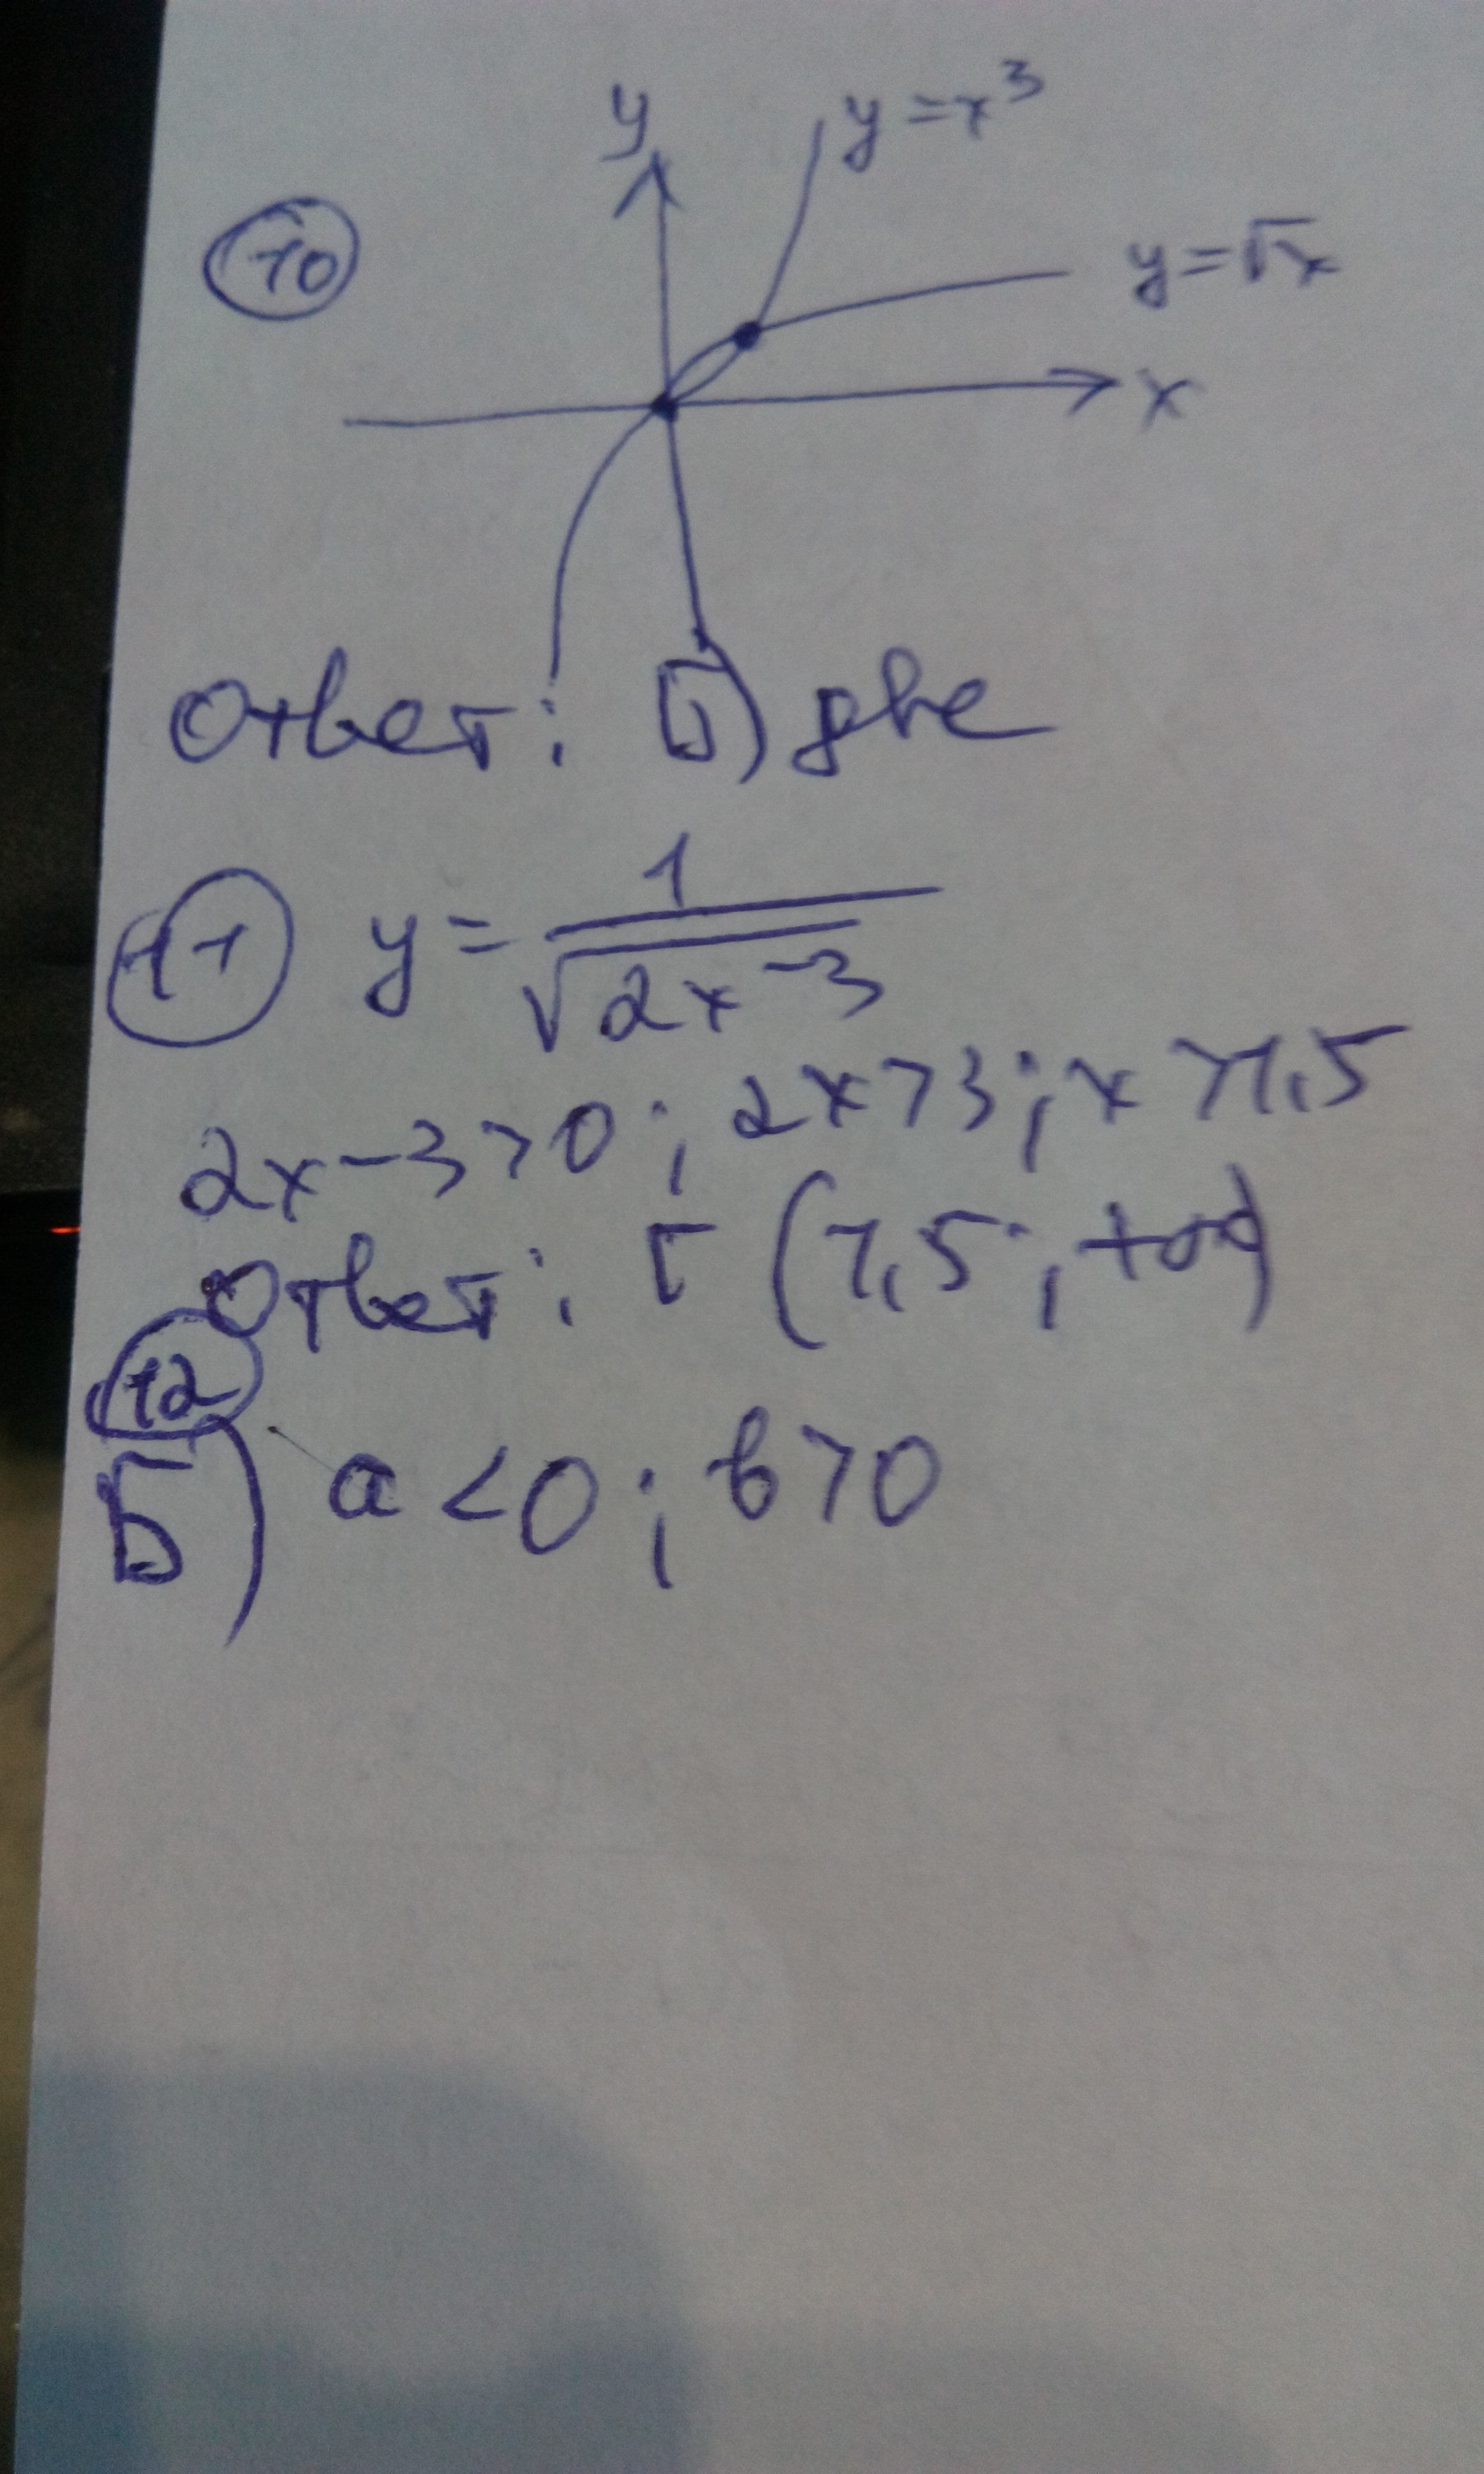 y
y=x³
10
y=√x
x
Ответ: Б) две
11 y=1/√(2x-3)
2x-3>0; 2x>3; x>1,5
Ответ: Г (1,5; +∞)
12
Б) a<0; b>0